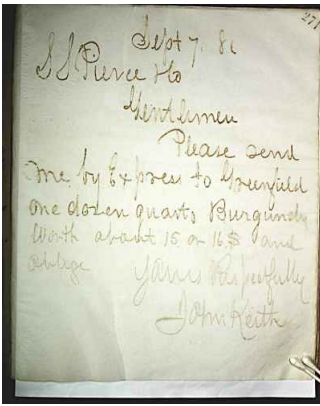 271
Sept 7. 81
S S Pierce & Co
Gentlemen
Please send
me by Express to Greenfield
one dozen quarts Burgundy
Worth about 15 or 16 $ and
oblige
Yours Respectfully
John Keith